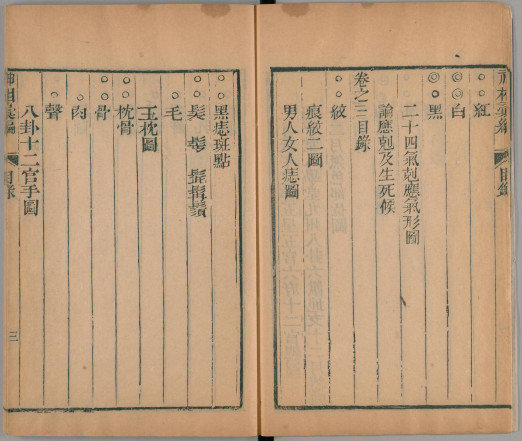 目錄
紅
白
黑
二十四氣剋應氣形圖
論應剋及生死候
卷之三目錄
紋
痕紋二圖
男人女人痣圖
黑痣斑點
髮 鬢 髭髯鬚
毛
玉枕圖
枕骨
骨
肉
聲
八卦十二宮手圖
目錄 三